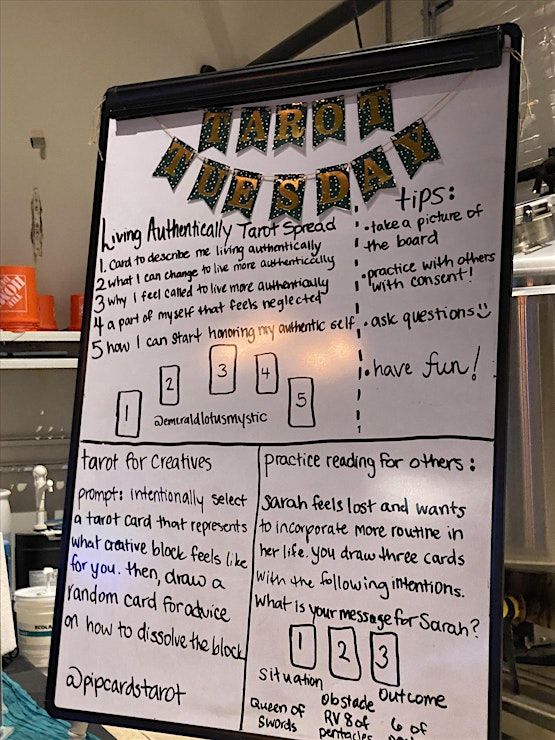 TAROT
TUESDAY
Living Authentically Tarot Spread
1. Card to describe me living authentically
2 what I can change to live more authentically
3 why I feel called to live more authentically
4 a part of myself that feels neglected
5 how I can start honoring my authentic self
1
2
3
4
5
@emeraldlotusmystic
tips:
• take a picture of
the board
• practice with others
with consent!
• ask questions
• have fun!
tarot for Creatives
prompt: intentionally select
a tarot card that represents
what creative block feels like
for you. then, draw a
random card for advice
on how to dissolve the block
@pipcardstarot
practice reading for others:
Sarah feels lost and wants
to incorporate more routine in
her life. you draw three cards
with the following intentions.
What is your message for Sarah?
1
2
3
Situation
Obstacle
Outcome
Queen of
Swords
RV 8 of
pentacles
6 of